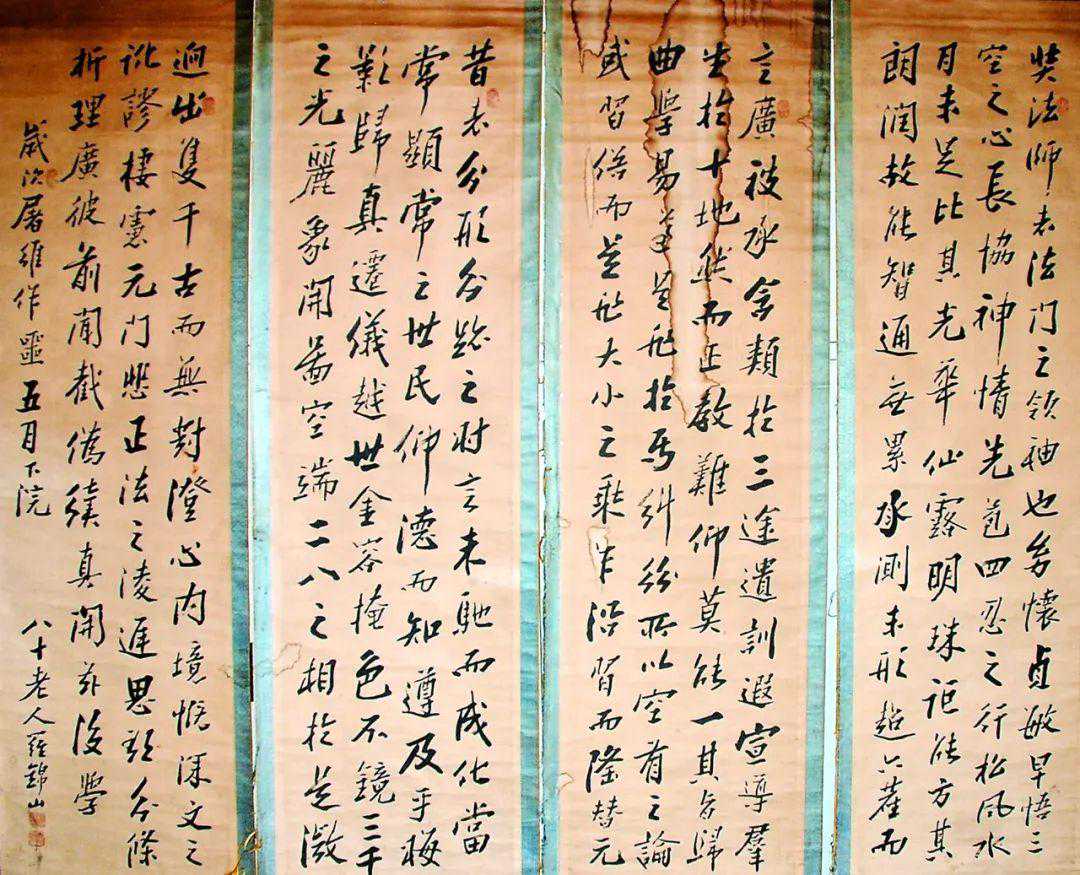 奘法師者法门之領袖也幼懷貞敏早悟三
空之心長協神情先苞四忍之行松風水
月未足比其光華仙露明珠詎能方其
朗潤故能智通無累承測未形超六塵而
言廣被承含類於三途遺訓遐宣導羣
生於十地然而正教難仰莫能一其旨歸
曲學易遵是非於焉糾紛所以空有之論
或習俗而是非大小之乘乍沿習而隆替元
昔者分形分跡之時言未馳而成化當
常顯常之世民仰德而知遵及乎晦
影歸真遷儀越世金容掩色不鏡三千
之光麗象開圖空端二八之相於是微
迥出隻千古而無對澄心内境慨深文之
訛謬棲慮元门悲正法之陵遲思欲分條
析理廣彼前聞截偽續真開茲後學
歲次屠維作噩五月下院
八十老人羅錦山